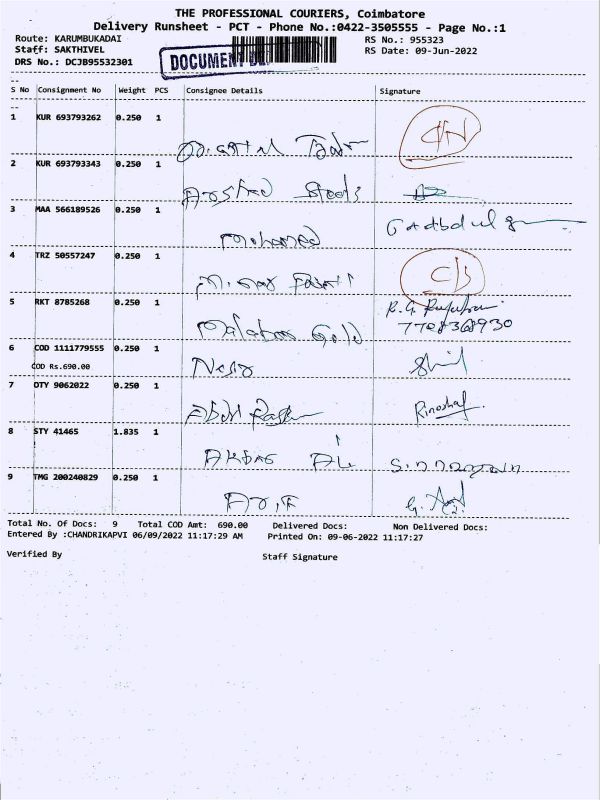 THE PROFESSIONAL COURIERS, Coimbatore
Delivery Runsheet - PCT - Phone No.:0422-3505555 - Page No.:1
Route: KARUMBUKADAI RS No.: 955323
Staff: SAKTHIVEL RS Date: 09-Jun-2022
DRS No.: DCJB95532301
DOCUMENT
S No Consignment No Weight PCS Consignee Details Signature
1 KUR 693793262 0.250 1
2 KUR 693793343 0.250 1
Arshad Steels
3 MAA 566189526 0.250 1
Mohamed
4 TRZ 50557247 0.250 1
5 RKT 8785268 0.250 1
Malabar Gold 7708368930
6 COD 1111779555 0.250 1
COD Rs.690.00
7 OTY 9062022 0.250 1
Abdul Rinoshaf
8 STY 41465 1.835 1
Akbar Ali
9 TMG 200240829 0.250 1
Total No. Of Docs: 9 Total COD Amt: 690.00 Delivered Docs: Non Delivered Docs:
Entered By :CHANDRIKAPVI 06/09/2022 11:17:29 AM Printed On: 09-06-2022 11:17:27
Verified By Staff Signature